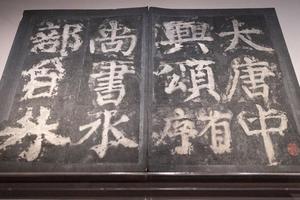 大唐中
興頌有序
尚書水
部員外